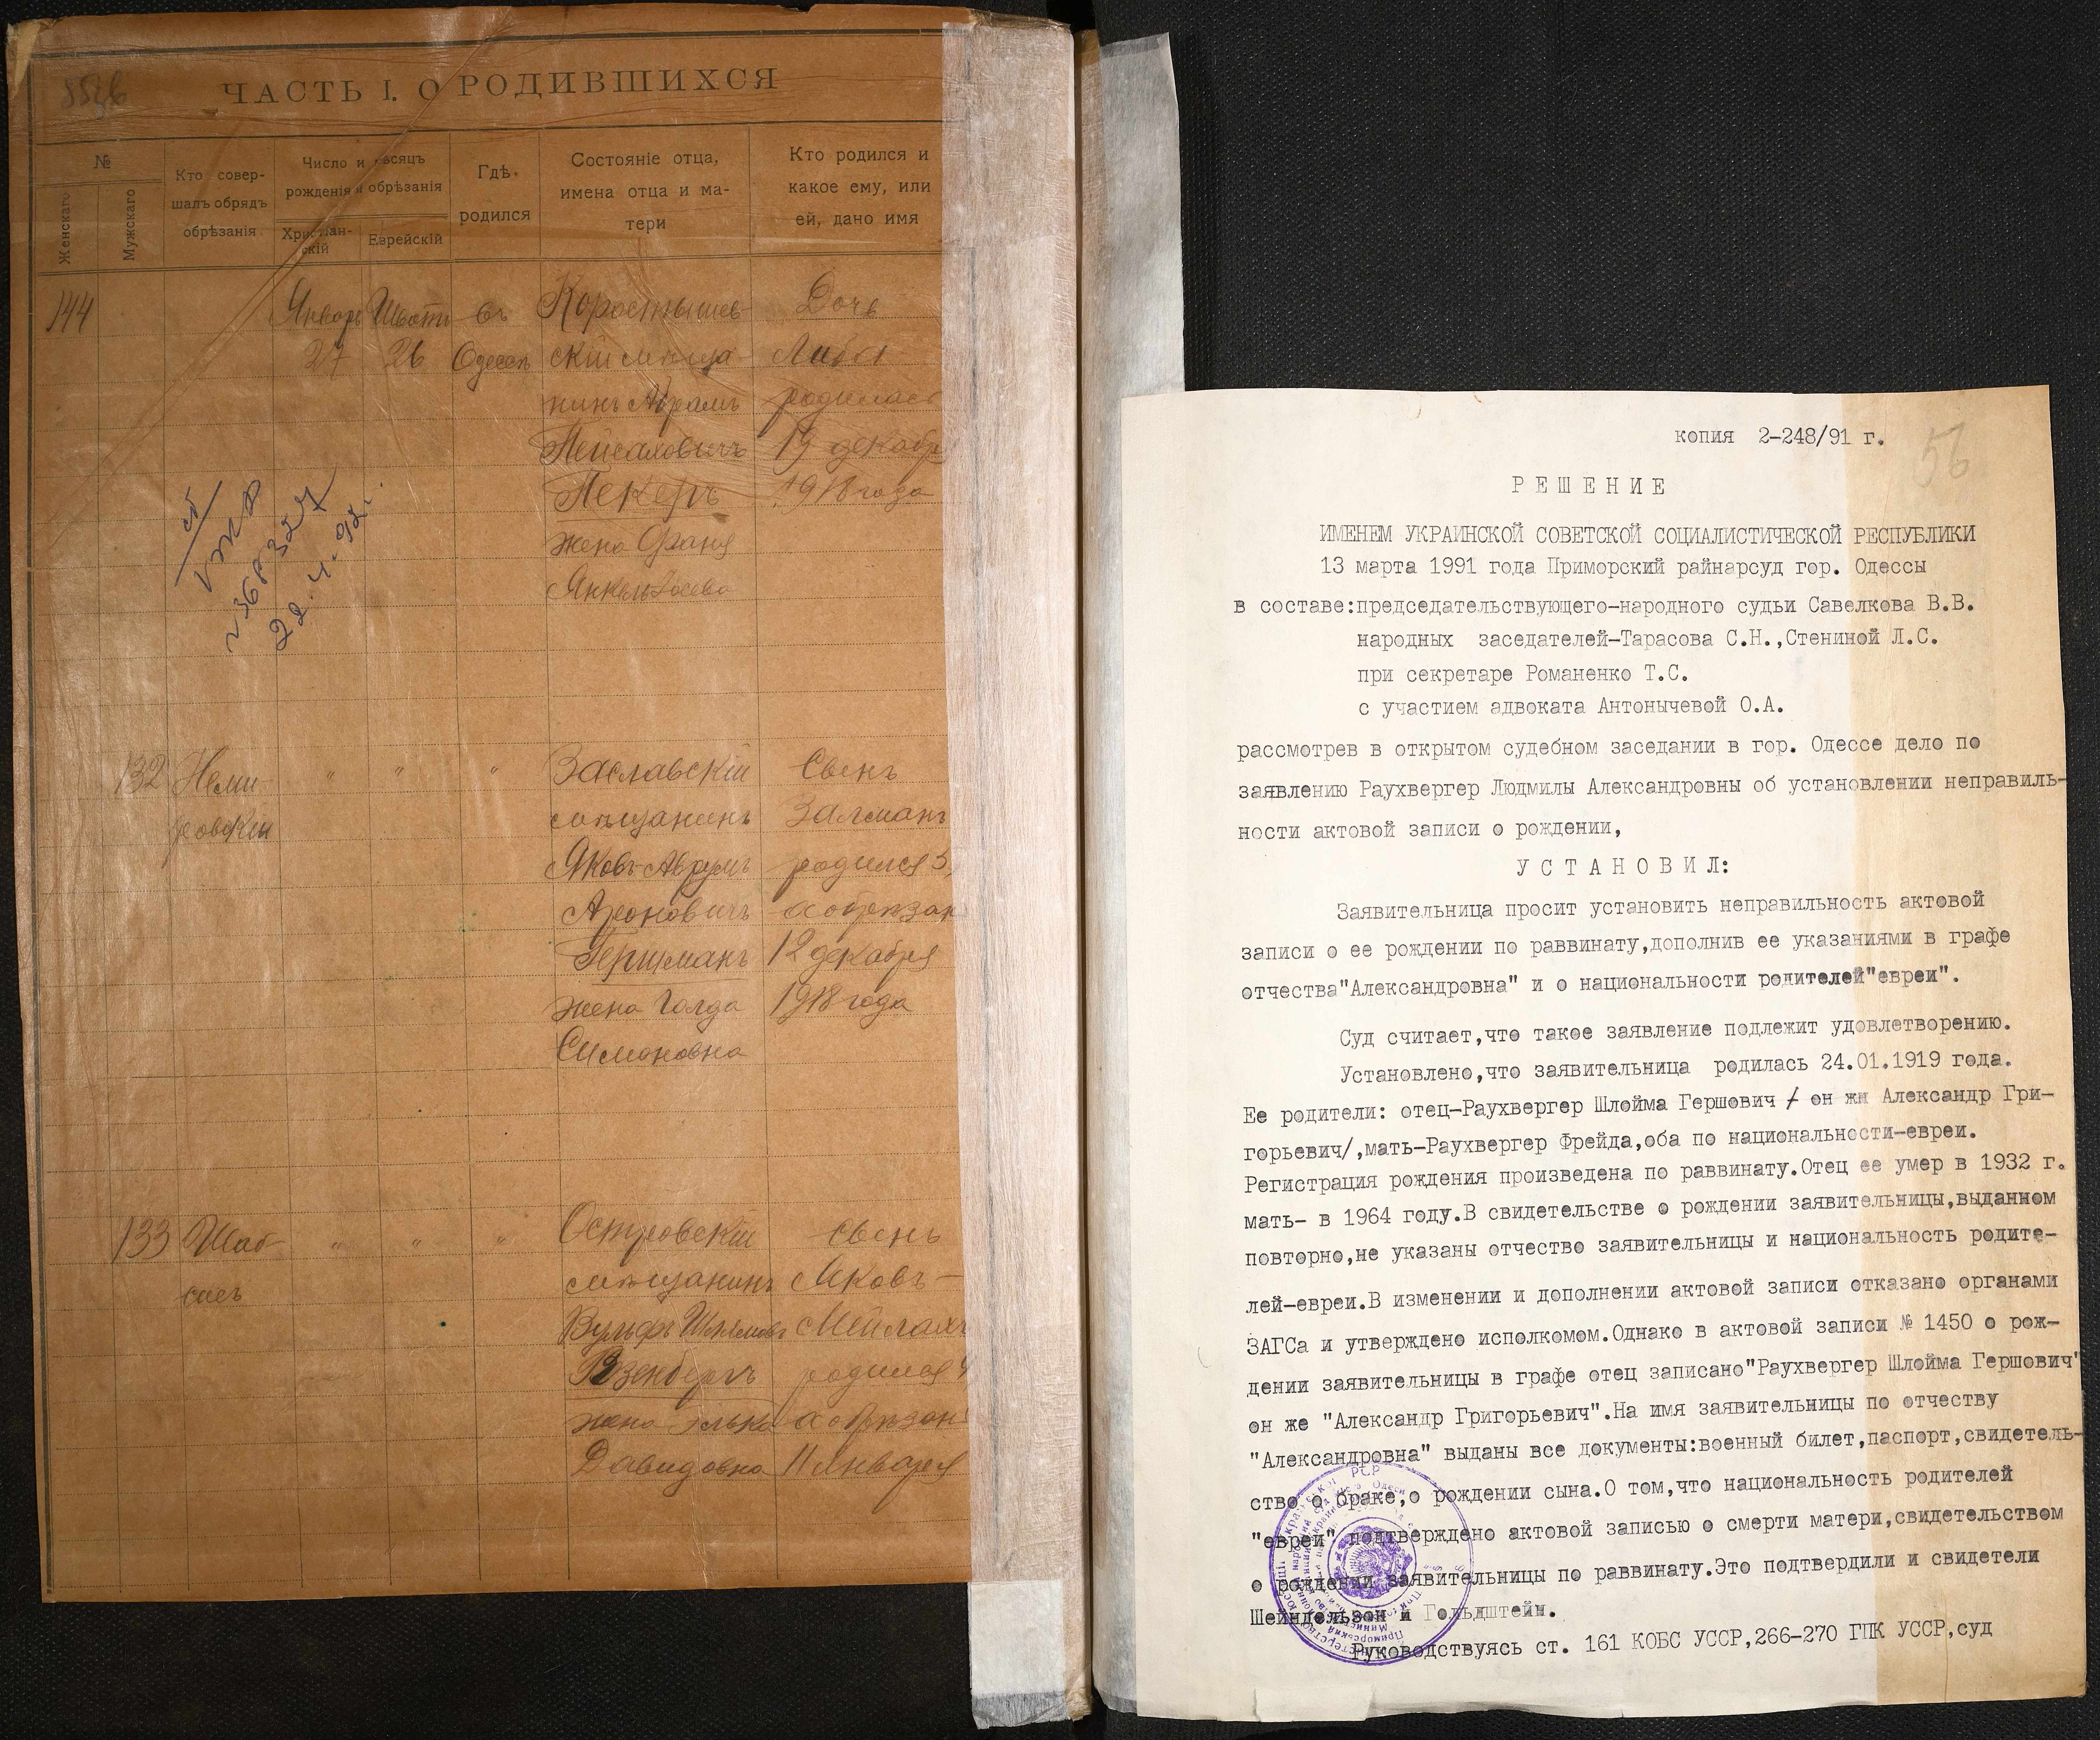 ЧАСТЬ I. О РОДИВШИХСЯ
№
Женскаго
Мужскаго
Кто совер-
шалъ обрядъ
обрѣзанія
Число и мѣсяцъ
рожденія и обрѣзанія
Христіан-
скій
Еврейскій
Гдѣ
родился
Состояніе отца,
имена отца и ма-
тери
Кто родился и
какое ему, или
ей, дано имя
144
Январь
27
Шватъ
26
въ
Одессѣ
Коростышев-
скій мѣща-
нинъ Абрамъ
Пейсаховичъ
Пекеръ
жена Фаня
Дочь
Либа
родилась
19 декабр
1918 года
22.4.92г.
132
Неми-
ровскій
"
"
"
Заславскій
мѣщанинъ
Яковъ-Аврумъ
Ароновичъ
Гершманъ
жена Голда
Симоновна
Сынъ
Залманъ
родился 5,
а обрѣзан
12 декабря
1918 года
133
Шаб-
сисъ
"
"
"
Островскій
мѣщанинъ
Вульфъ
Розенбергъ
жена Элька
Давидовна
сынъ
Яковъ-
Мейлахъ
родился 4
а обрѣзанъ
11 января
копия 2-248/91 г.
56
РЕШЕНИЕ
ИМЕНЕМ УКРАИНСКОЙ СОВЕТСКОЙ СОЦИАЛИСТИЧЕСКОЙ РЕСПУБЛИКИ
13 марта 1991 года Приморский райнарсуд гор. Одессы
в составе:председательствующего-народного судьи Савелкова В.В.
народных заседателей-Тарасова С.Н.,Стениной Л.С.
при секретаре Романенко Т.С.
с участием адвоката Антонычевой О.А.
рассмотрев в открытом судебном заседании в гор. Одессе дело по
заявлению Раухвергер Людмилы Александровны об установлении неправиль-
ности актовой записи о рождении,
УСТАНОВИЛ:
Заявительница просит установить неправильность актовой
записи о ее рождении по раввинату,дополнив ее указаниями в графе
отчества"Александровна" и о национальности родителей"евреи".
Суд считает,что такое заявление подлежит удовлетворению.
Установлено,что заявительница родилась 24.01.1919 года.
Ее родители: отец-Раухвергер Шлойма Гершович / он же Александр Гри-
горьевич/,мать-Раухвергер Фрейда,оба по национальности-евреи.
Регистрация рождения произведена по раввинату.Отец ее умер в 1932 г.
мать- в 1964 году.В свидетельстве о рождении заявительницы,выданном
повторно,не указаны отчество заявительницы и национальность родите-
лей-евреи.В изменении и дополнении актовой записи отказано органами
ЗАГСа и утверждено исполкомом.Однако в актовой записи № 1450 о рож-
дении заявительницы в графе отец записано"Раухвергер Шлойма Гершович"
он же "Александр Григорьевич".На имя заявительницы по отчеству
"Александровна" выданы все документы:военный билет,паспорт,свидетель-
ство о браке,о рождении сына.О том,что национальность родителей
"евреи" подтверждено актовой записью о смерти матери,свидетельством
о рождении заявительницы по раввинату.Это подтвердили и свидетели
Шейндельзон и Гольдштейн.
Руководствуясь ст. 161 КОБС УССР,266-270 ГПК УССР,суд